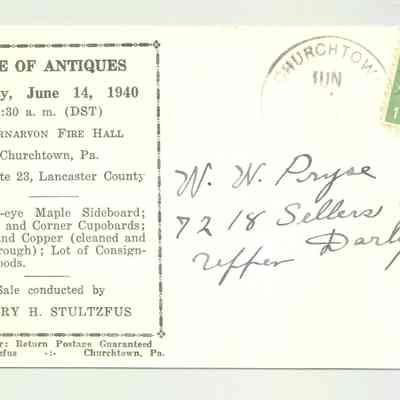 E OF ANTIQUES
y, June 14, 1940
:30 a. m. (DST)
RNARVON FIRE HALL
Churchtown, Pa.
te 23, Lancaster County
-eye Maple Sideboard;
and Corner Cupobards;
nd Copper (cleaned and
rough); Lot of Consign-
oods.
Sale conducted by
RY H. STULTZFUS
r: Return Postage Guaranteed
zfus -:- Churchtown, Pa.
CHURCHTOW
JUN
1
W. W. Pryse
7218 Sellers
Upper Darby